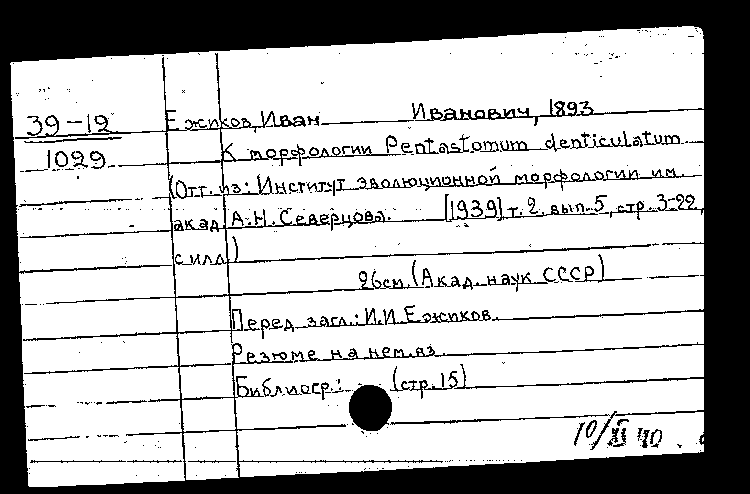 39-12 Ежиков, Иван Иванович, 1893
1029 К морфологии Pentastomum denticulatum
(Отт. из: Институт эволюционной морфологии им.
акад. А.Н. Северцова. [1939] т. 2. вып. 5, стр. 3-22,
с илл)
26см. (Акад. наук СССР)
Перед загл.: И.И. Ежиков.
Резюме на нем. яз.
Библиогр.: (стр. 15)
10/XI 40.